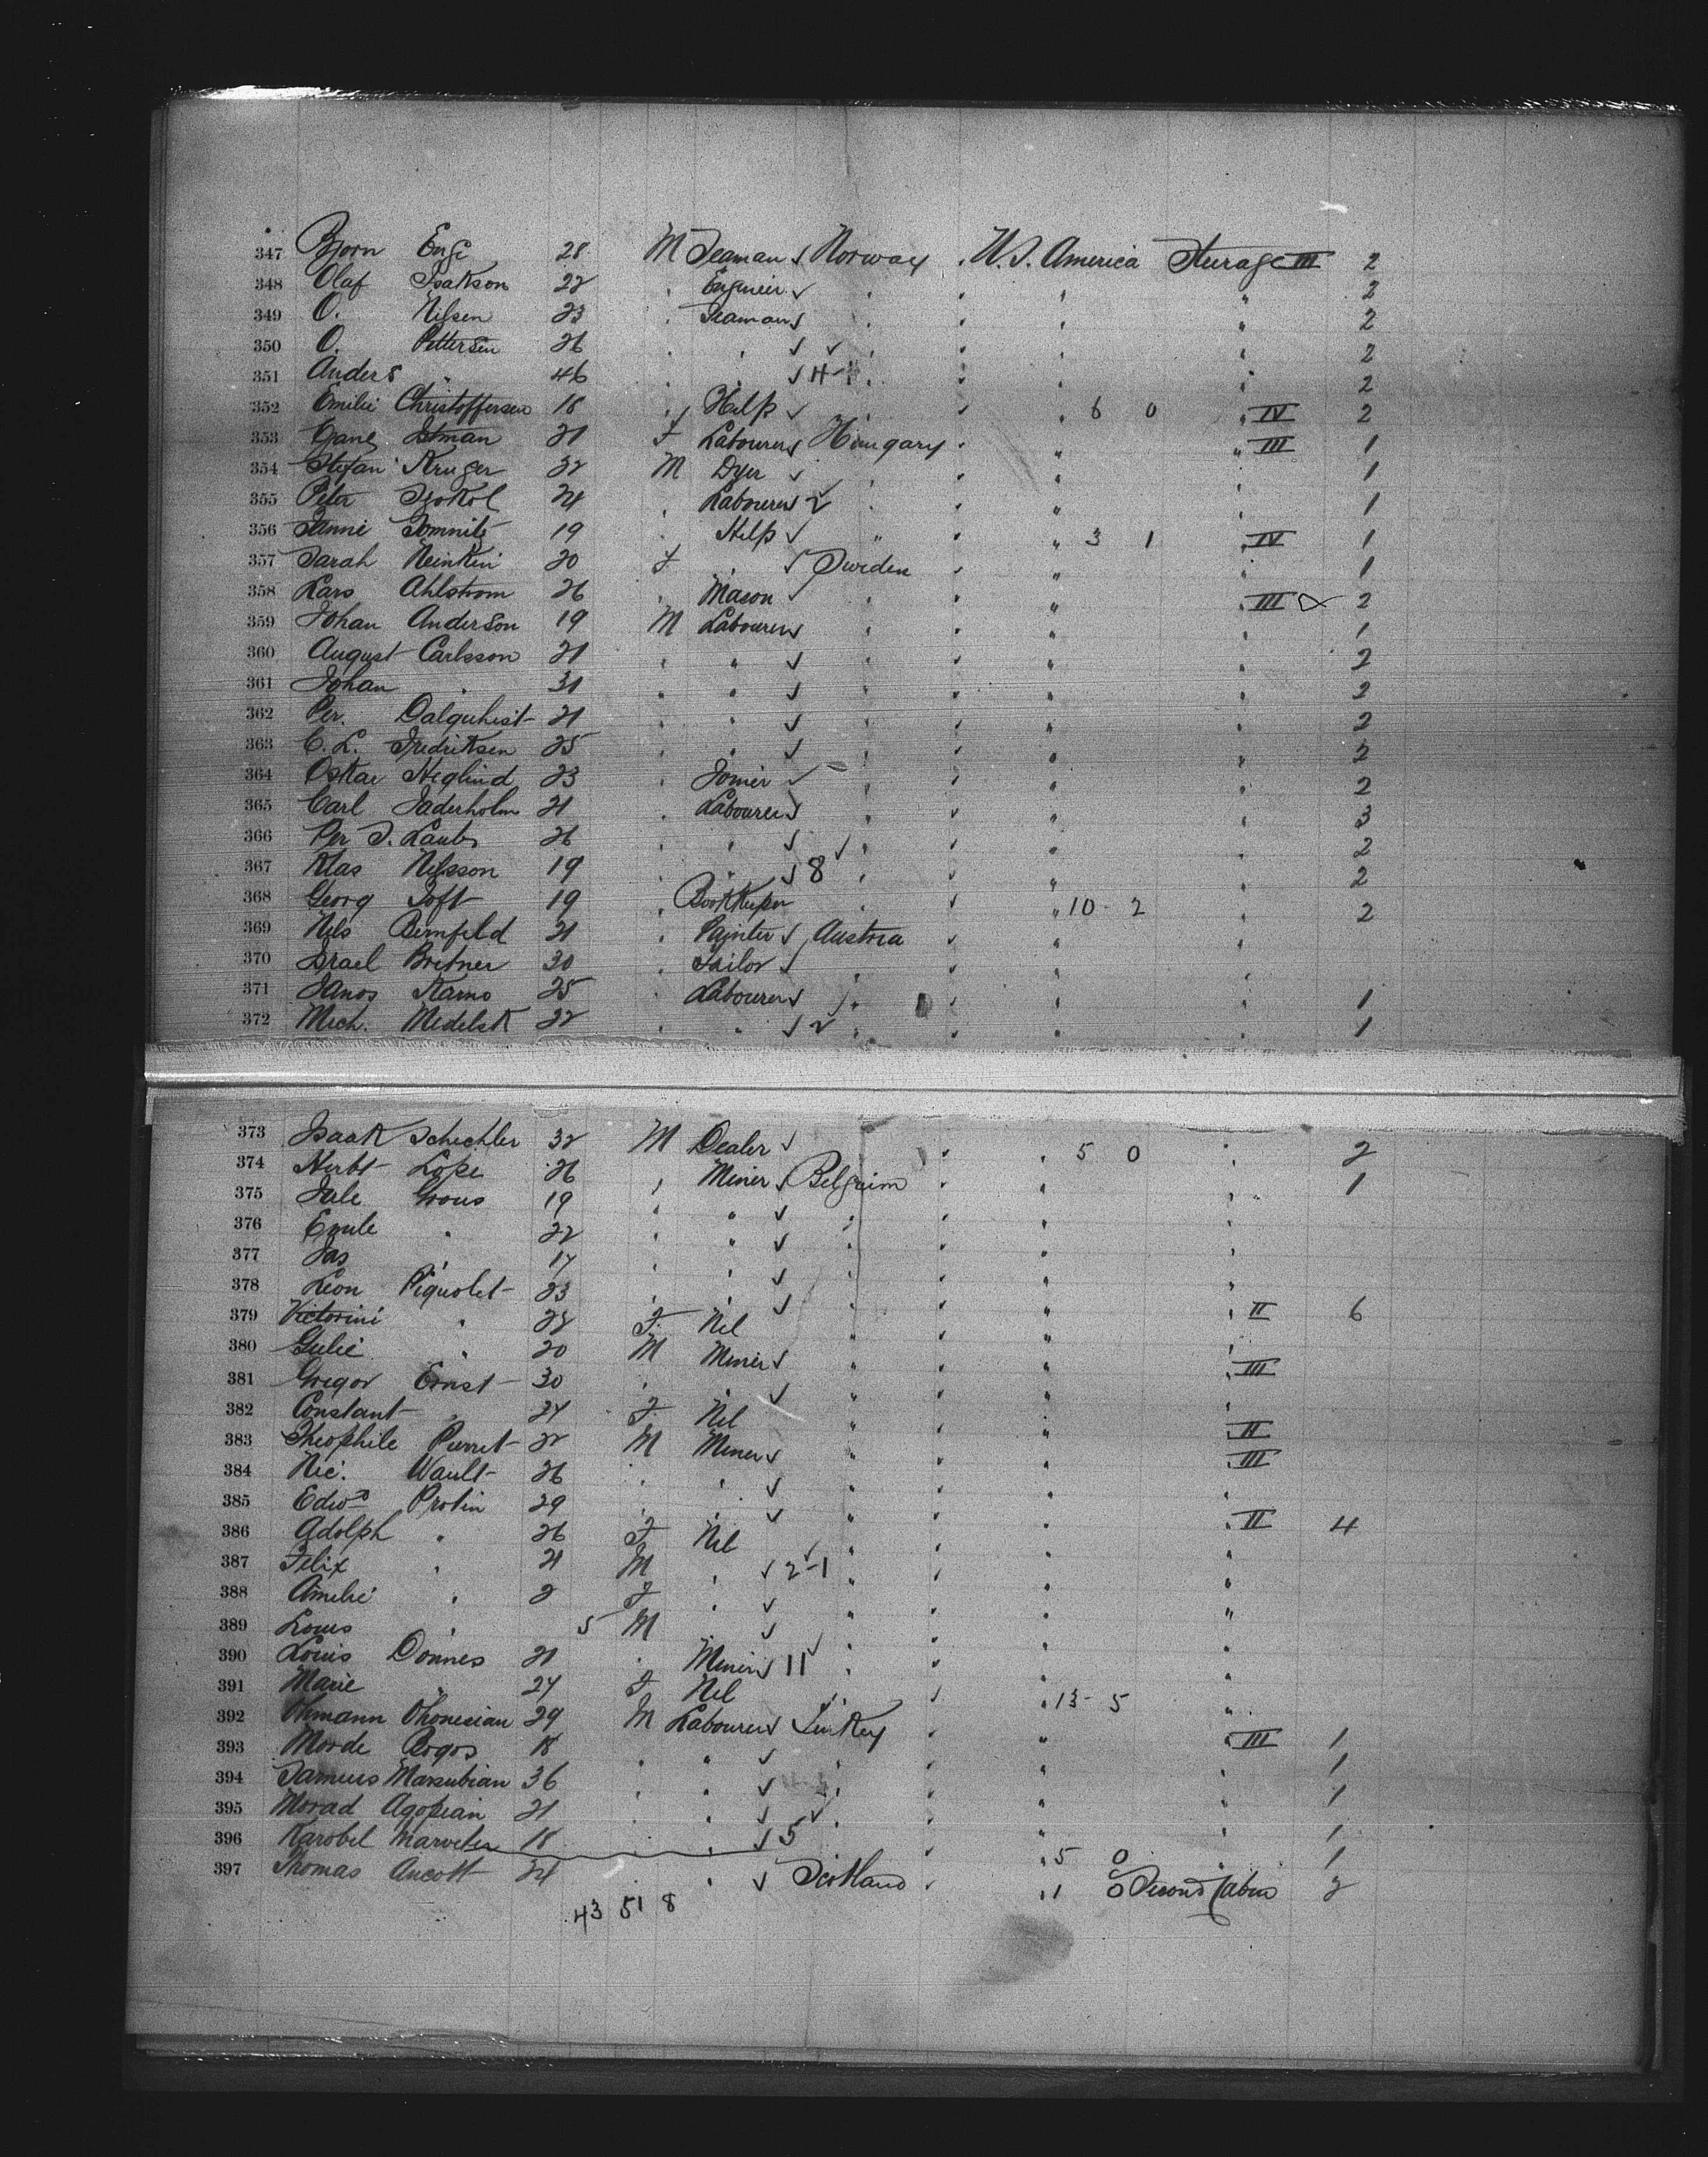 347 Bjorn Enge 28 M Seaman Norway U.S. America Steerage III 2
348 Olaf Isakson 22 " Engineer " " " " 2
349 O. Nilsen 23 " Seaman " " " " 2
350 O. Pettersen 26 " " " " " " 2
351 Anders " 46 " " 4-1 " " " " 2
352 Emilie Christoffersen 18 " Help " " " 6 0 " IV 2
353 21 F Labourer Hungary " " " III 1
354 Stefan Kruger 32 M Dyer " " " " 1
355 Peter 24 " Labourer 2 " " " " 1
356 19 " Help " " " 3 1 " IV 1
357 Sarah 20 F " Sweden " " " 1
358 Lars Ahlstrom 26 " Mason " " " " III 2
359 Johan Anderson 19 M Labourer " " " " 1
360 August Carlsson 21 " " " " " " 2
361 Johan " 31 " " " " " " 2
362 Per. Dalquhist 21 " " " " " " 2
363 C. L. Fredriksen 25 " " " " " " 2
364 Oskar Heglind 23 " Joiner " " " " 2
365 Carl Jaderholm 21 " Labourer " " " " 3
366 Per J. 26 " " " " " " 2
367 Klas Nilsson 19 " " 8 " " " " 2
368 Georg Toft 19 " Bookkeeper " " " 10 - 2 " 2
369 Nils Bernfeld 21 " Painter Austria " " "
370 Israel Britner 30 " Tailor " " " "
371 Janos Karno 25 " Labourer " " " " 1
372 Mich. Medelsk 32 " " 2 " " " " 1
373 Isaak Schichler 32 M Dealer " " " 5 0 " 2
374 Herbt Lope 26 " Miner Belgium " " " 1
375 Jule 19 " " " " " "
376 Emile " 22 " " " " " "
377 Jas " 17 " " " " " "
378 Leon Piquolet 23 " " " " " II 6
379 Victorini " 22 F Nil " " "
380 Gulie " 20 M Miner " " " " III
381 Gregor Ernst 30 " " " " " "
382 Constant " 24 F Nil " " " " II
383 Theophile Purret 22 M Miner " " " " III
384 Nic. Wault 26 " " " " " "
385 Edwd Protin 29 " " " " " " II 4
386 Adolph " 26 F Nil " " " "
387 Felix " 21 M " 2-1 " " " "
388 Amelie " 2 F " " " " "
389 Louis " 5 M " " " " "
390 Louis Donnes 21 " Miner 11 " " " "
391 Marie " 24 F Nil " " " 13 - 5 "
392 29 M Labourer Turkey " " " III 1
393 Morde Bogos 18 " " " " " " 1
394 36 " " " " " " 1
395 Morad Agopian 21 " " " " " " 1
396 Karobel 18 " " 5 " " 5 0 " 1
397 Thomas Ancott 24 " " Scotland " " 1 0 Second Cabin 2
43 51 8